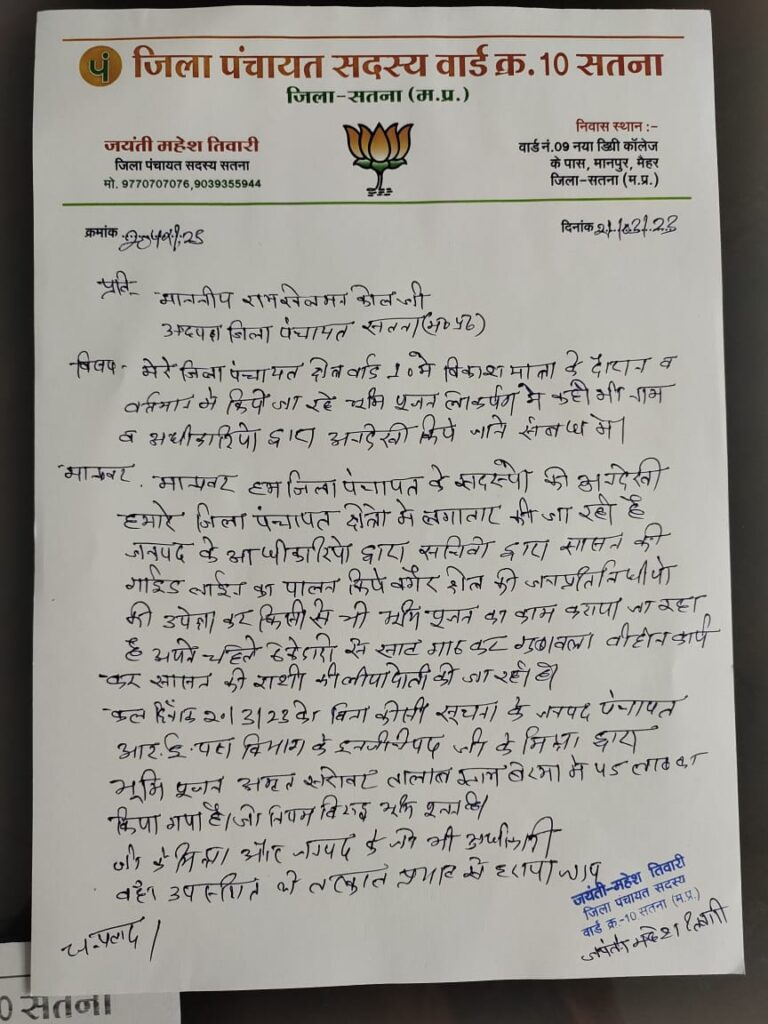 पं जिला पंचायत सदस्य वार्ड क्र. 10 सतना
जिला-सतना (म.प्र.)
जयंती महेश तिवारी
जिला पंचायत सदस्य सतना
मो. 9770707076,9039355944
निवास स्थान :-
वार्ड नं.09 नया डिग्री कॉलेज
के पास, मानपुर, मैहर
जिला-सतना (म.प्र.)
क्रमांक
दिनांक 21/03/23
प्रति-
माननीय रामखेलावन कोल जी
अध्यक्ष जिला पंचायत सतना (म०प्र०)
विषय- मेरे जिला पंचायत क्षेत्र वार्ड 10 मे विकाश यात्रा के दौरान व
वर्तमान मे किये जा रहे भूमि पूजन लोकर्पण मे कही भी नाम
व अधीकारियो द्वारा अनदेखी किये जाने संबंध मे।
मान्यवर, मान्यवर हम जिला पंचायत के सदस्यो की अनदेखी
हमारे जिला पंचायत क्षेत्रो मे लगातार की जा रही है
जनपद के आधीकारियो द्वारा सचिवो द्वारा सासन की
गाईड लाईन का पालन किये बगैर क्षेत्र की जनप्रतिनिधीयो
की उपेक्षा कर किसी से भी भूमि पूजन का काम कराया जा रहा
है अपने चहिते ठेकेदारो से साठ गाठ कर गुणवत्ता वीहीन कार्य
कर सासन की राशी की लीपापोती की जा रही है।
कल दिनांक 20/3/23 को बिना कीसी सूचना के जनपद पंचायत
आर.ई.एस विभाग के इनजीनीयर जी के मिश्रा द्वारा
भूमि पूजन अमृत सरोवर तालाब ग्राम बेरमा मे 45 लाख का
किया गया है। जो नियम विरुद्ध भूमि पूजन है।
जी के मिश्रा और जनपद के जो भी अधीकारी
वहा उपस्थित थे तत्काल प्रभाव से हटाया जाय
धन्यवाद।
जयंती-महेश तिवारी
जिला पंचायत सदस्य
वार्ड क्र.-10 सतना (म.प्र.)
जयंती महेश तिवारी
0 सतना